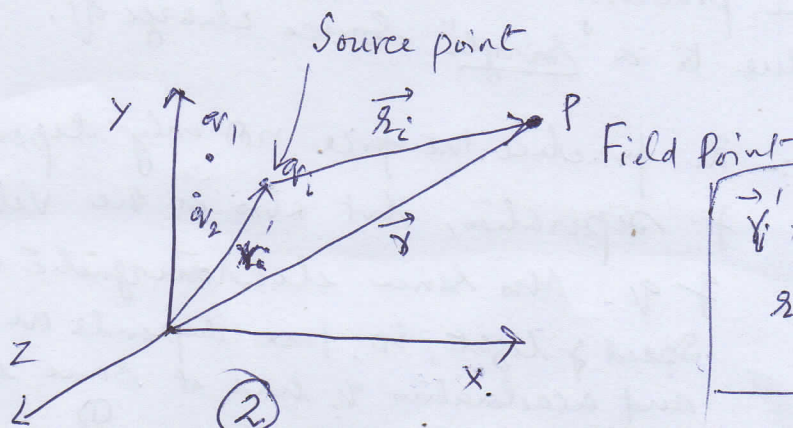 Source point
Y
q1
q2
qi
ri
P
Field Point
r
ri'
ri'
r
Z
X
2